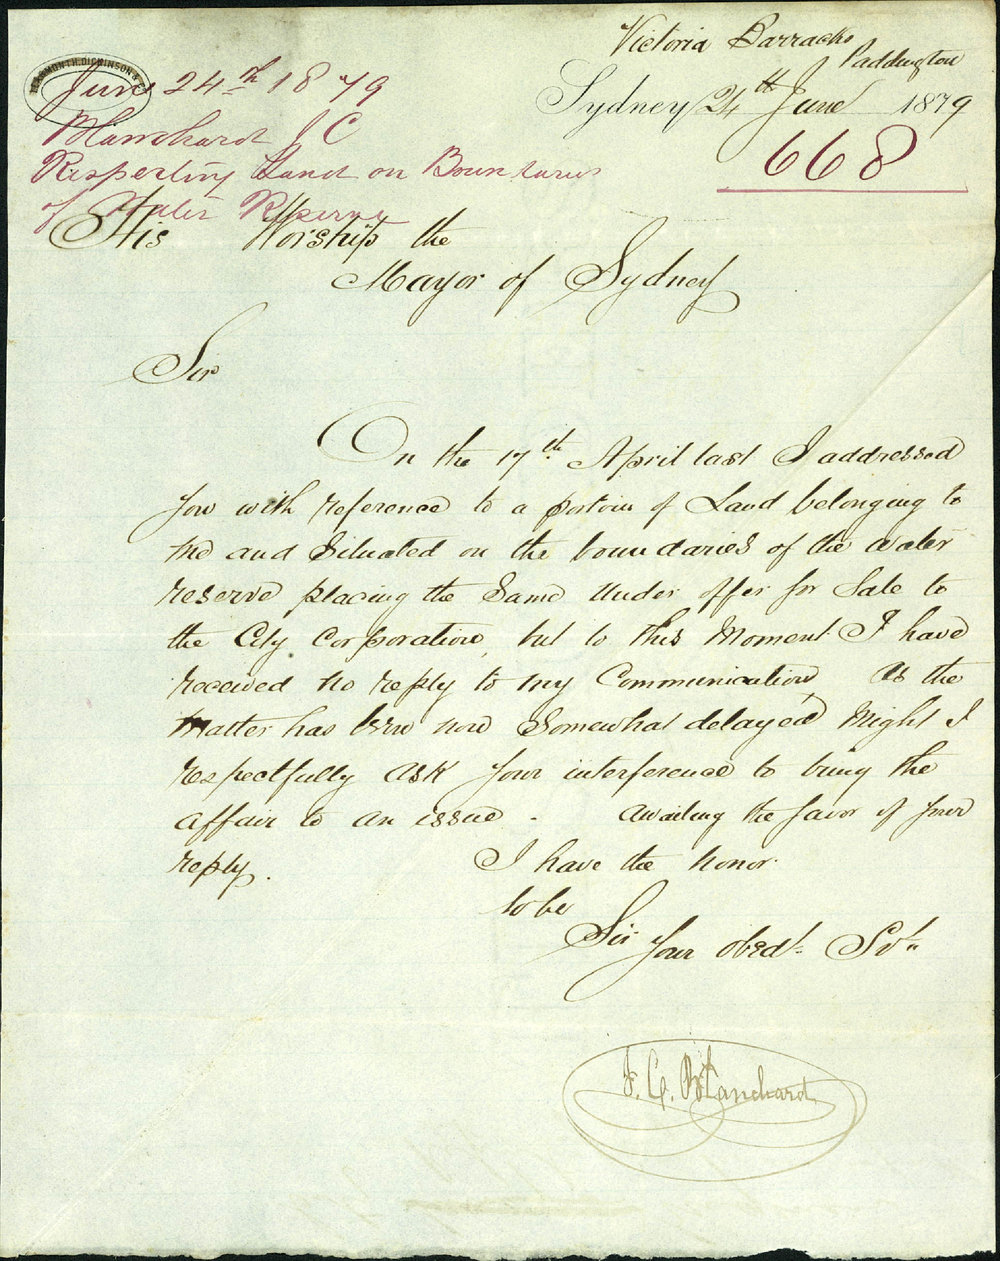 Victoria Barracks
Paddington
Sydney 24th June 1879
668
June 24th 1879
Blanchard J C
Respecting Land on Boundaries
of Water Reserve
His Worship the
Mayor of Sydney
Sir
On the 17th April last I addressed
you with reference to a portion of Land belonging to
me and situated on the boundaries of the water
reserve placing the same under offer for Sale to
the City Corporation, but to this moment I have
received no reply to my Communication, As the
matter has been now somewhat delayed might I
respectfully ask your interference to bring the
affair to an issue. Awaiting the favor of your
reply.
I have the honor
to be
Sir
Your obedt. Svt.
J. C. Blanchard